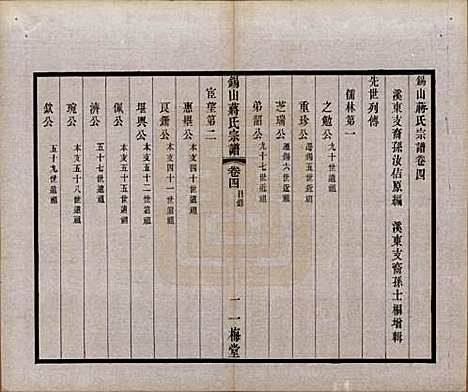 錫山蔣氏宗譜卷四
溪東支裔孫汝佶原編 溪東支裔孫士桐增輯
先世列傳
儒林第一
之勉公 九十世遠祖
重珍公 遷錫五世近祖
芝瑞公 遷錫六世近祖
弟韶公 九十七世近祖
錫山蔣氏宗譜 卷四 目錄
二 一梅堂
宦望第二
惠嶼公 本支四十世遠祖
艮齋公 本支四十一世遠祖
堪輿公 本支五十二世遠祖
佩公 本支五十五世遠祖
濟公 五十七世遠祖
琬公 本支五十八世遠祖
欽公 五十九世遠祖